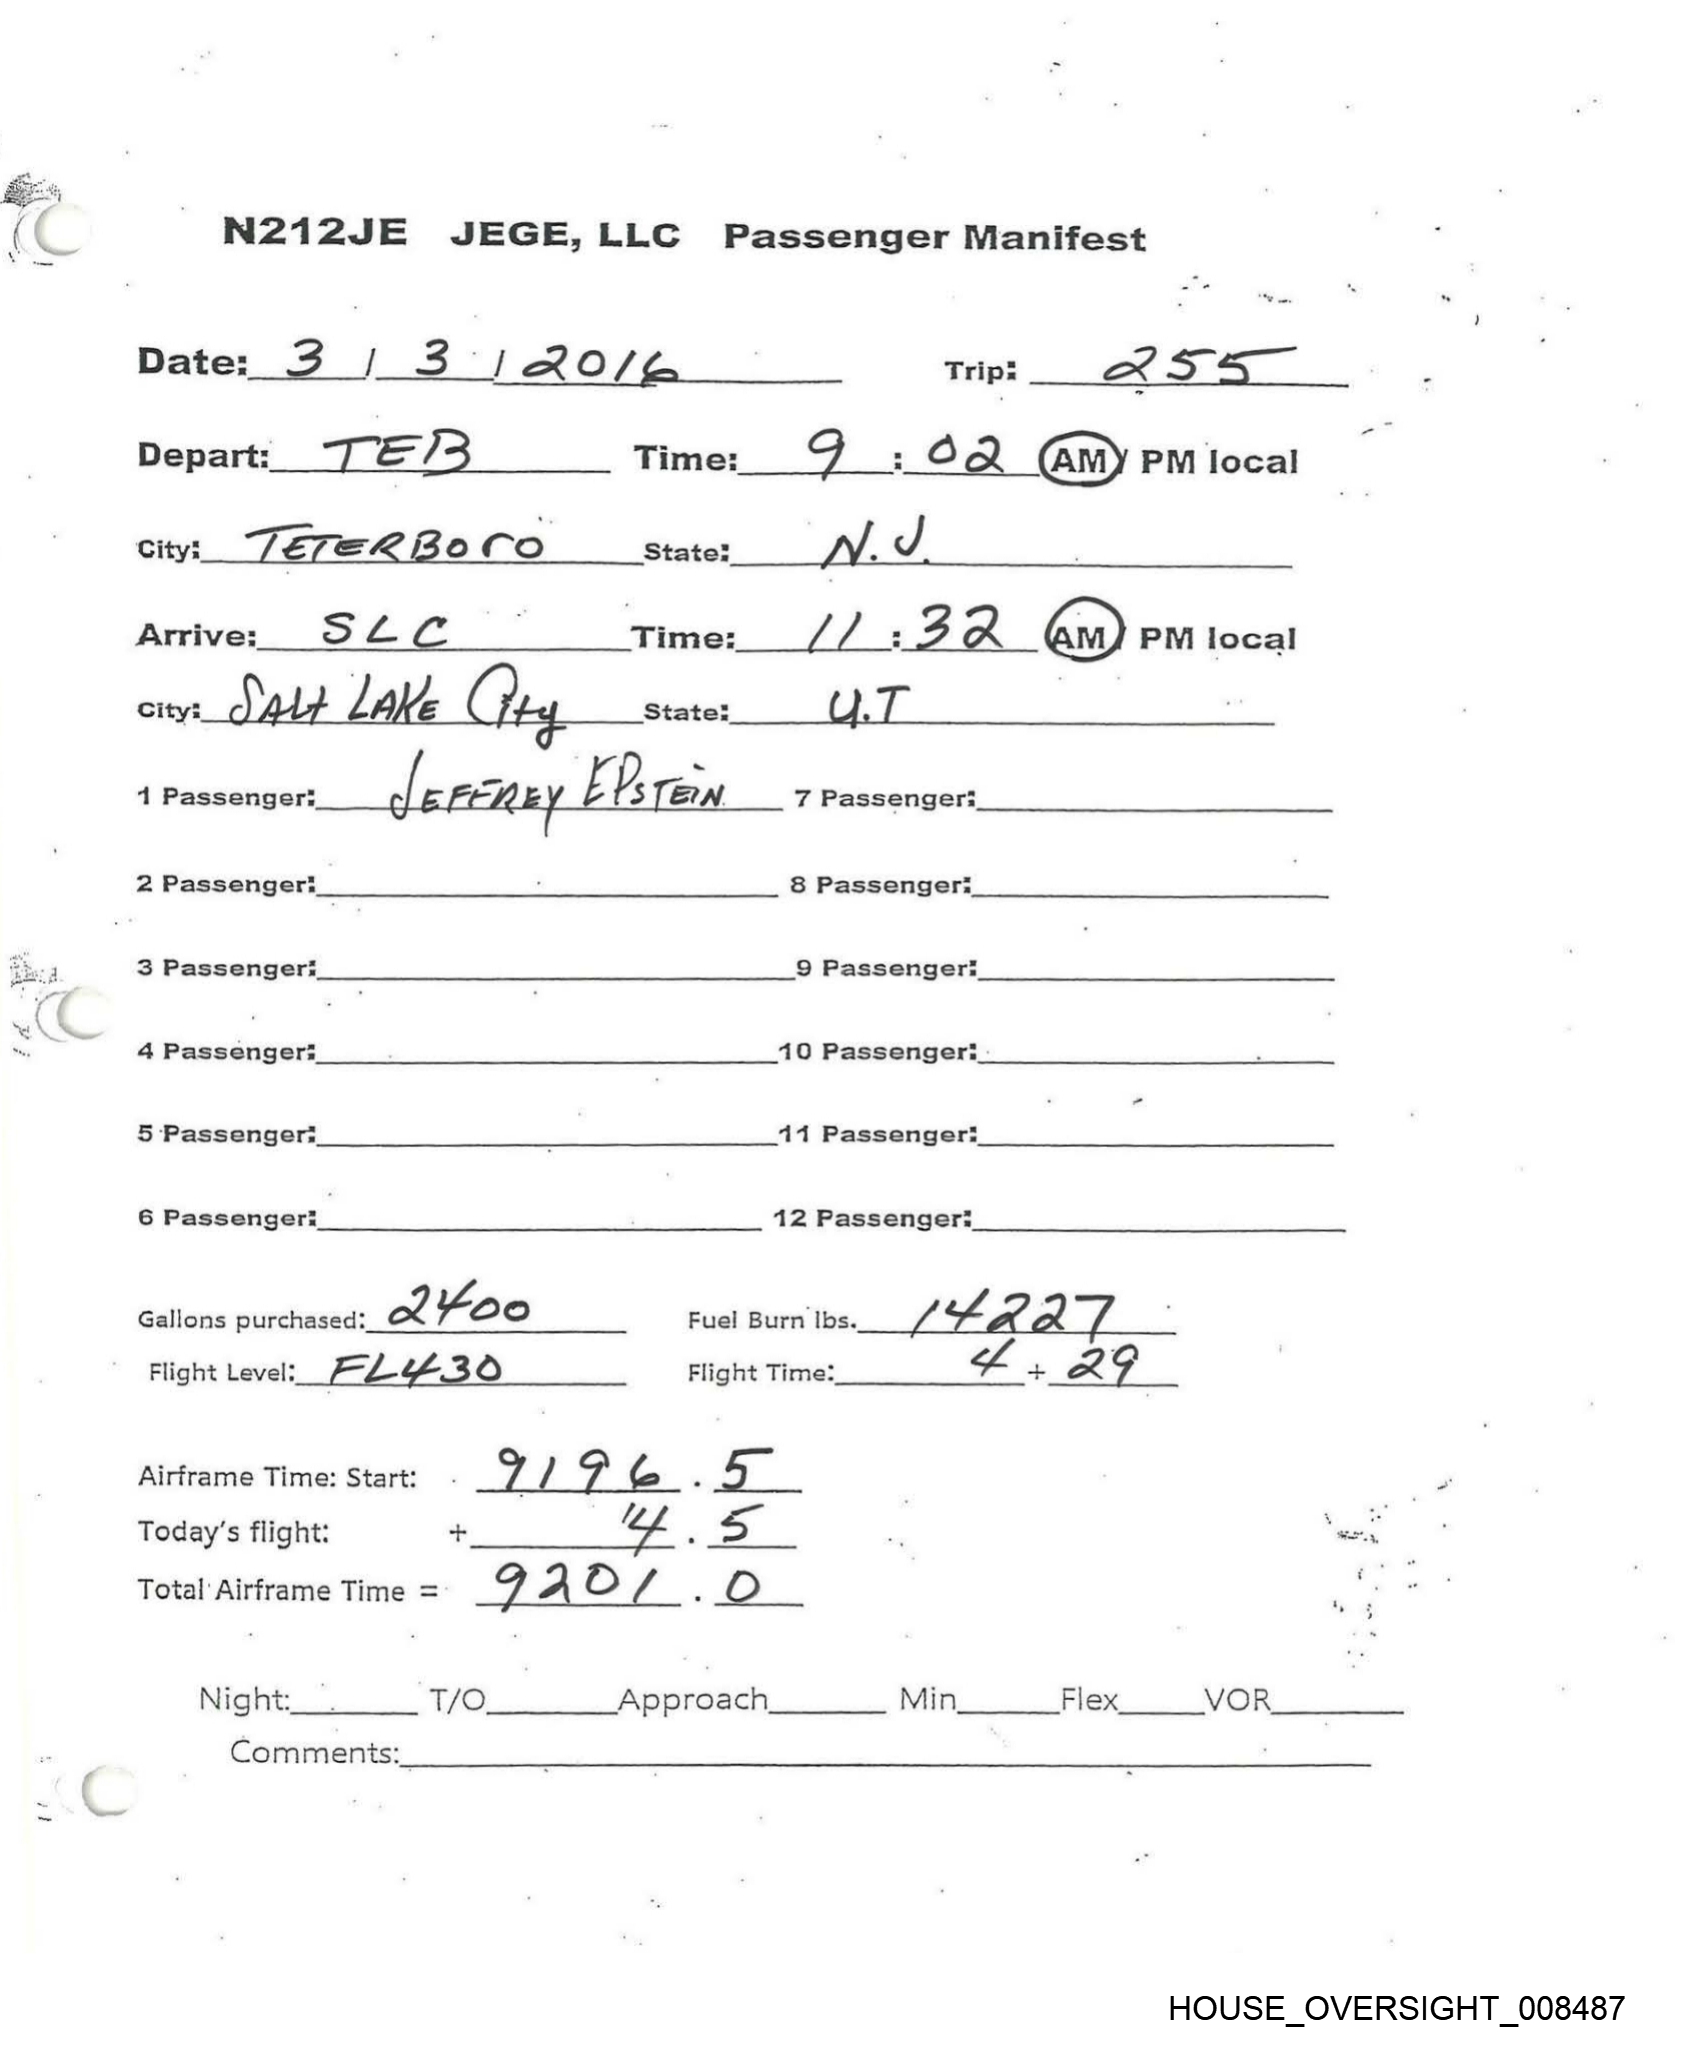 N212JE JEGE, LLC Passenger Manifest
Date: 3 / 3 / 2016 Trip: 255
Depart: TEB Time: 9 : 02 AM / PM local
City: TETERBORO State: N.J.
Arrive: SLC Time: 11 : 32 AM / PM local
City: SALT LAKE City State: U.T
1 Passenger: JEFFREY EPSTEIN 7 Passenger:
2 Passenger: 8 Passenger:
3 Passenger: 9 Passenger:
4 Passenger: 10 Passenger:
5 Passenger: 11 Passenger:
6 Passenger: 12 Passenger:
Gallons purchased: 2400 Fuel Burn lbs. 14227
Flight Level: FL430 Flight Time: 4 + 29
Airframe Time: Start: 9196 . 5
Today's flight: + 4 . 5
Total Airframe Time = 9201 . 0
Night: T/O Approach Min Flex VOR
Comments:
HOUSE_OVERSIGHT_008487